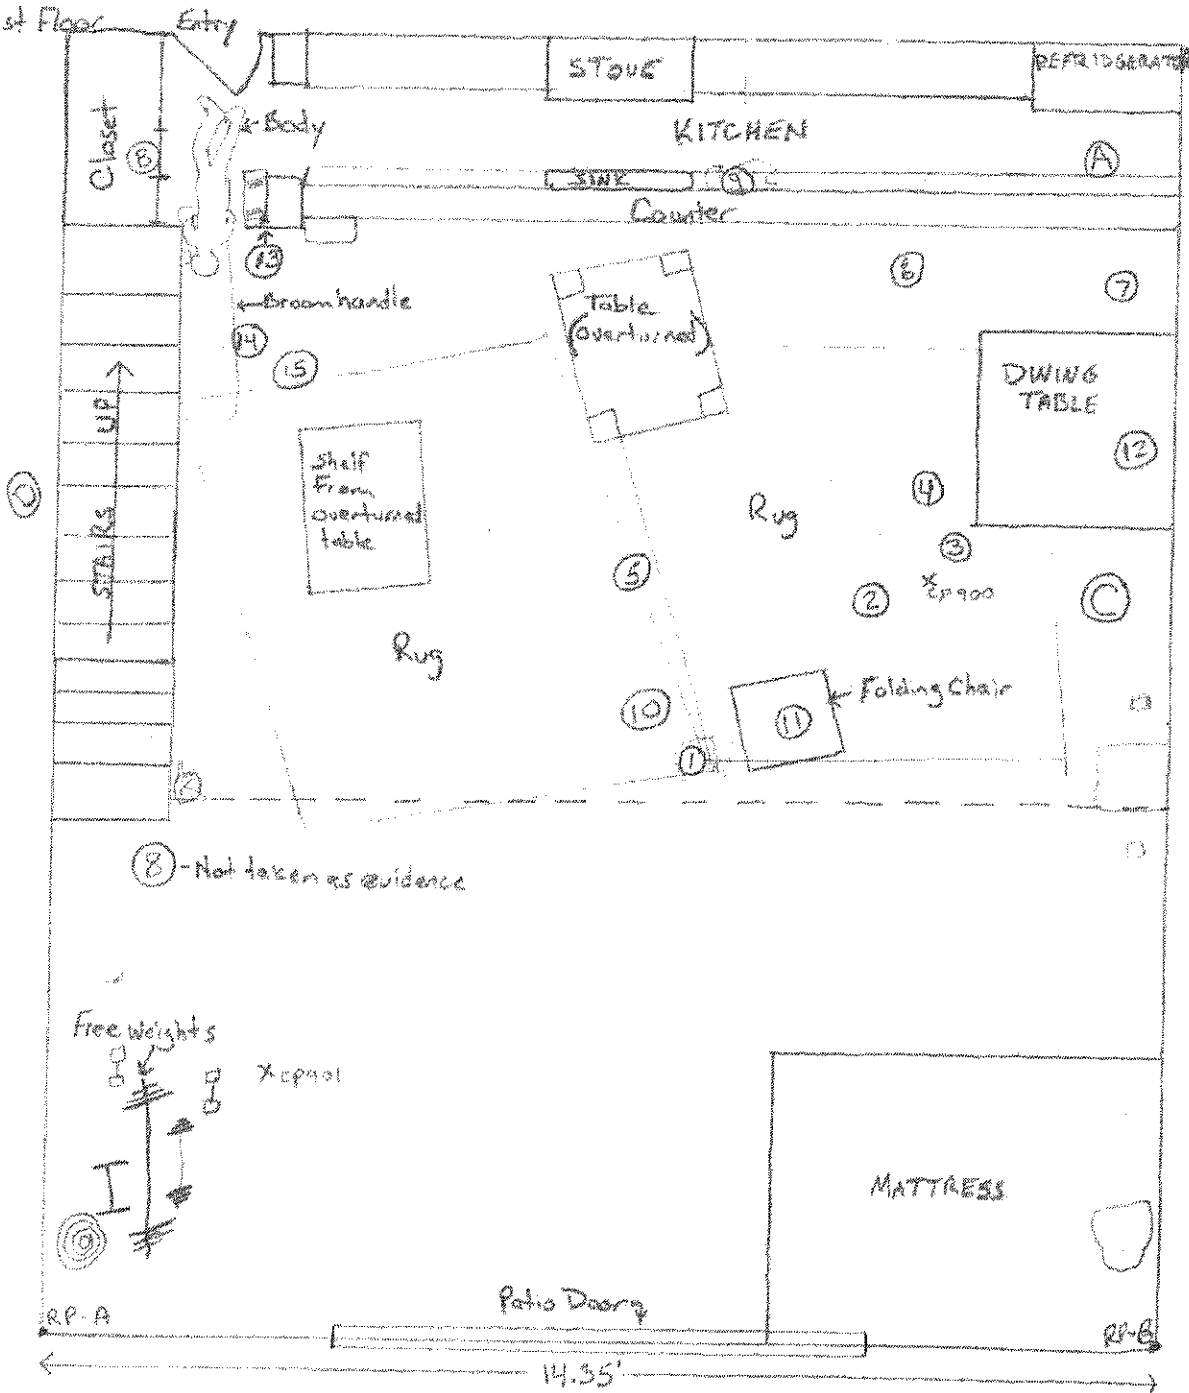 st Floor
Entry
STOVE
REFRIDGERATOR
Closet
Body
KITCHEN
B
A
SINK
9
Counter
13
6
7
Broomhandle
Table
(overturned)
14
15
DINING
TABLE
UP
12
Shelf
From
overturned
table
4
Rug
STAIRS
3
5
2
CP900
C
Rug
Folding Chair
10
11
1
8 - Not taken as evidence
Free Weights
x CP901
MATTRESS
Patio Door
RP-A
RP-B
14.35'